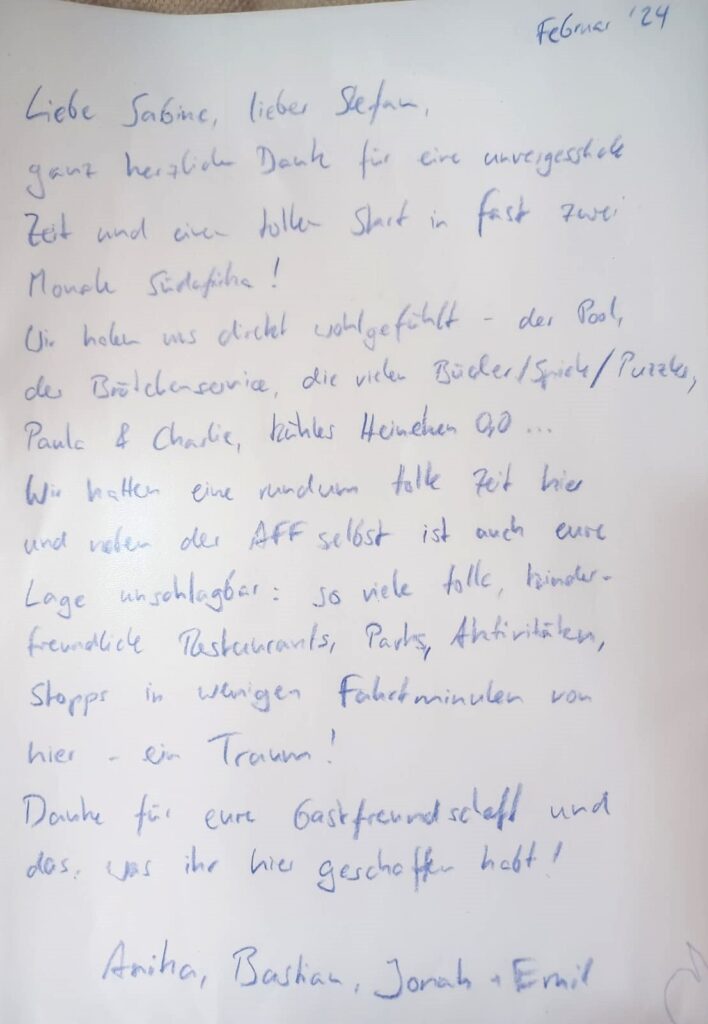 Februar '24
Liebe Sabine, lieber Stefan,
ganz herzlichen Dank für eine unvergessliche
Zeit und einen tollen Start in fast zwei
Monate Südafrika!
Wir haben uns direkt wohlgefühlt - der Pool,
der Brötchenservice, die vielen Bücher/Spiele/Puzzles,
Paula & Charlie, kühles Heineken 0,0 ...
Wir hatten eine rundum tolle Zeit hier
und neben der AFF selbst ist auch eure
Lage unschlagbar: so viele tolle, kinder-
freundliche Restaurants, Parks, Aktivitäten,
Stopps in wenigen Fahrtminuten von
hier - ein Traum!
Danke für eure Gastfreundschaft und
das, was ihr hier geschaffen habt!
Anika, Bastian, Jonah + Emil